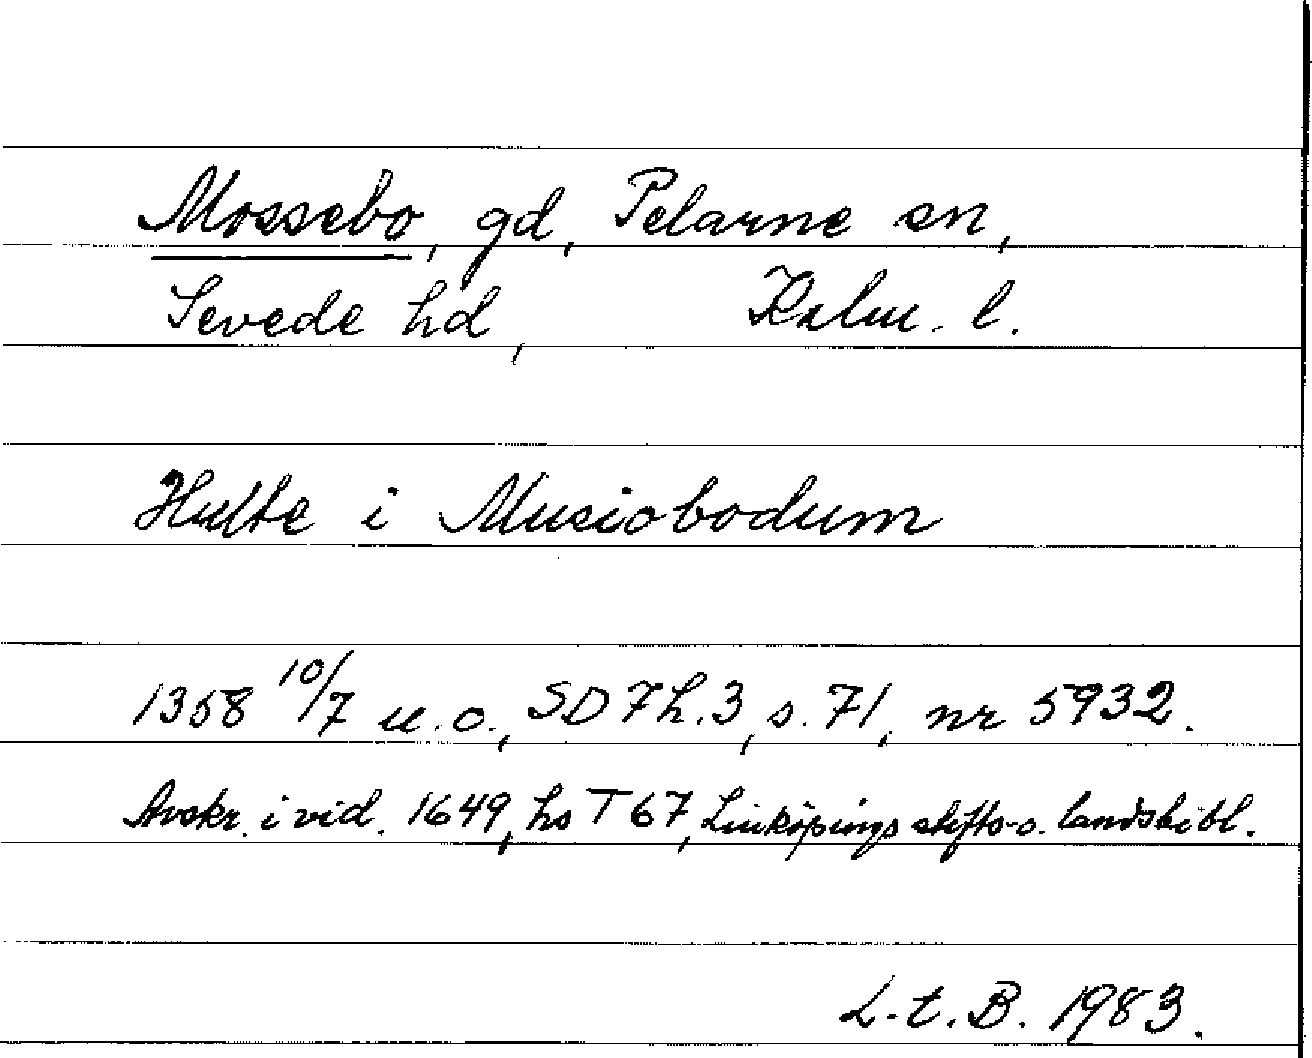 Mossebo, gd, Pelarne sn,
Sevede hd, Kalm. l.
Hulte i Musiobodum
1358 10/7 u.o., SD 7 h. 3, s. 71, nr 5932.
Avskr. i vid. 1649, hs T 67, Linköpings stifts- o. landsbibl.
L. t. B. 1983.